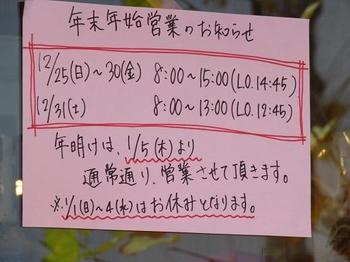 年末年始営業のお知らせ
12/25(日)~30(金) 8:00~15:00(LO.14:45)
12/31(土) 8:00~13:00(LO.12:45)
年明けは、1/5(木)より
通常通り、営業させて頂きます。
※1/1(日)~4(水)はお休みとなります。